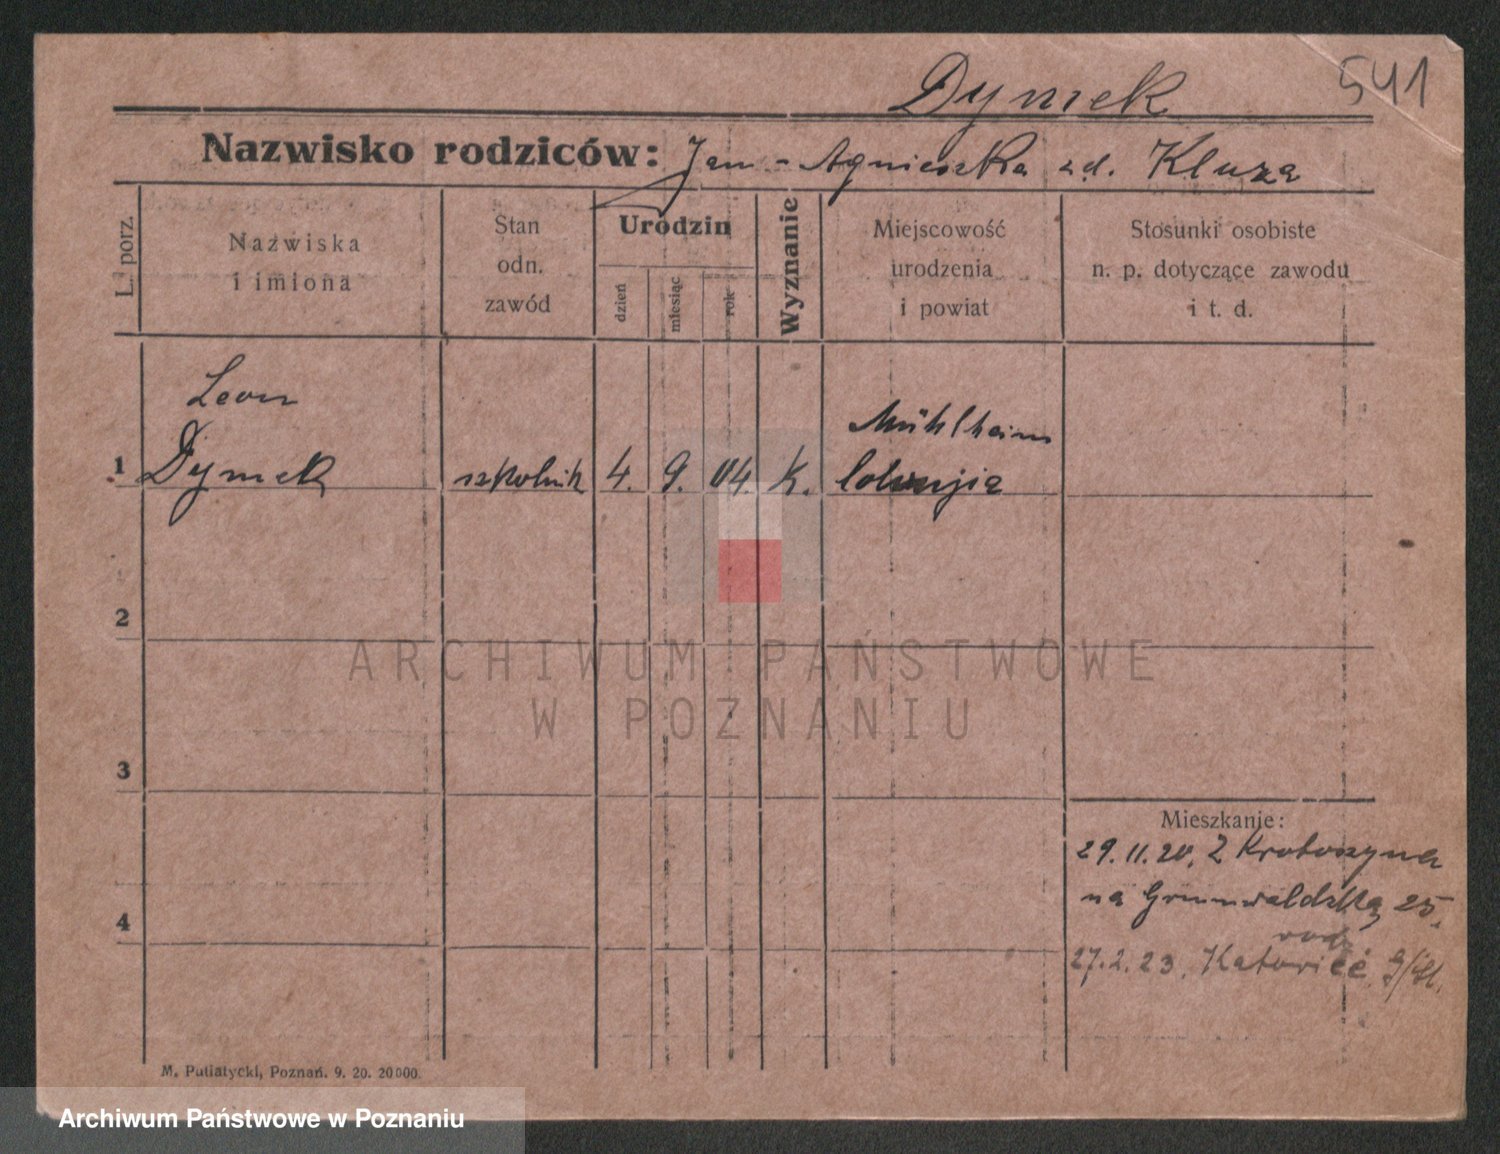 Dymek
541
Nazwisko rodziców: Jan - Agnieszka zd. Kluza
L. porz.
Nazwiska
i imiona
Stan
odn.
zawód
Urodzin
dzień
miesiąc
rok
Wyznanie
Miejscowość
urodzenia
i powiat
Stosunki osobiste
n. p. dotyczące zawodu
i t. d.
Leon
Mühlheim
1 Dymek szkolnik 4. 9. 04. K.
2
ARCHIWUM PAŃSTWOWE
W POZNANIU
3
Mieszkanie:
29.11.20. Z Krotoszyna
na Grunwaldzką 25.
4
27.2.23. Katowice
M. Putiatycki, Poznań. 9. 20. 20000.
Archiwum Państwowe w Poznaniu